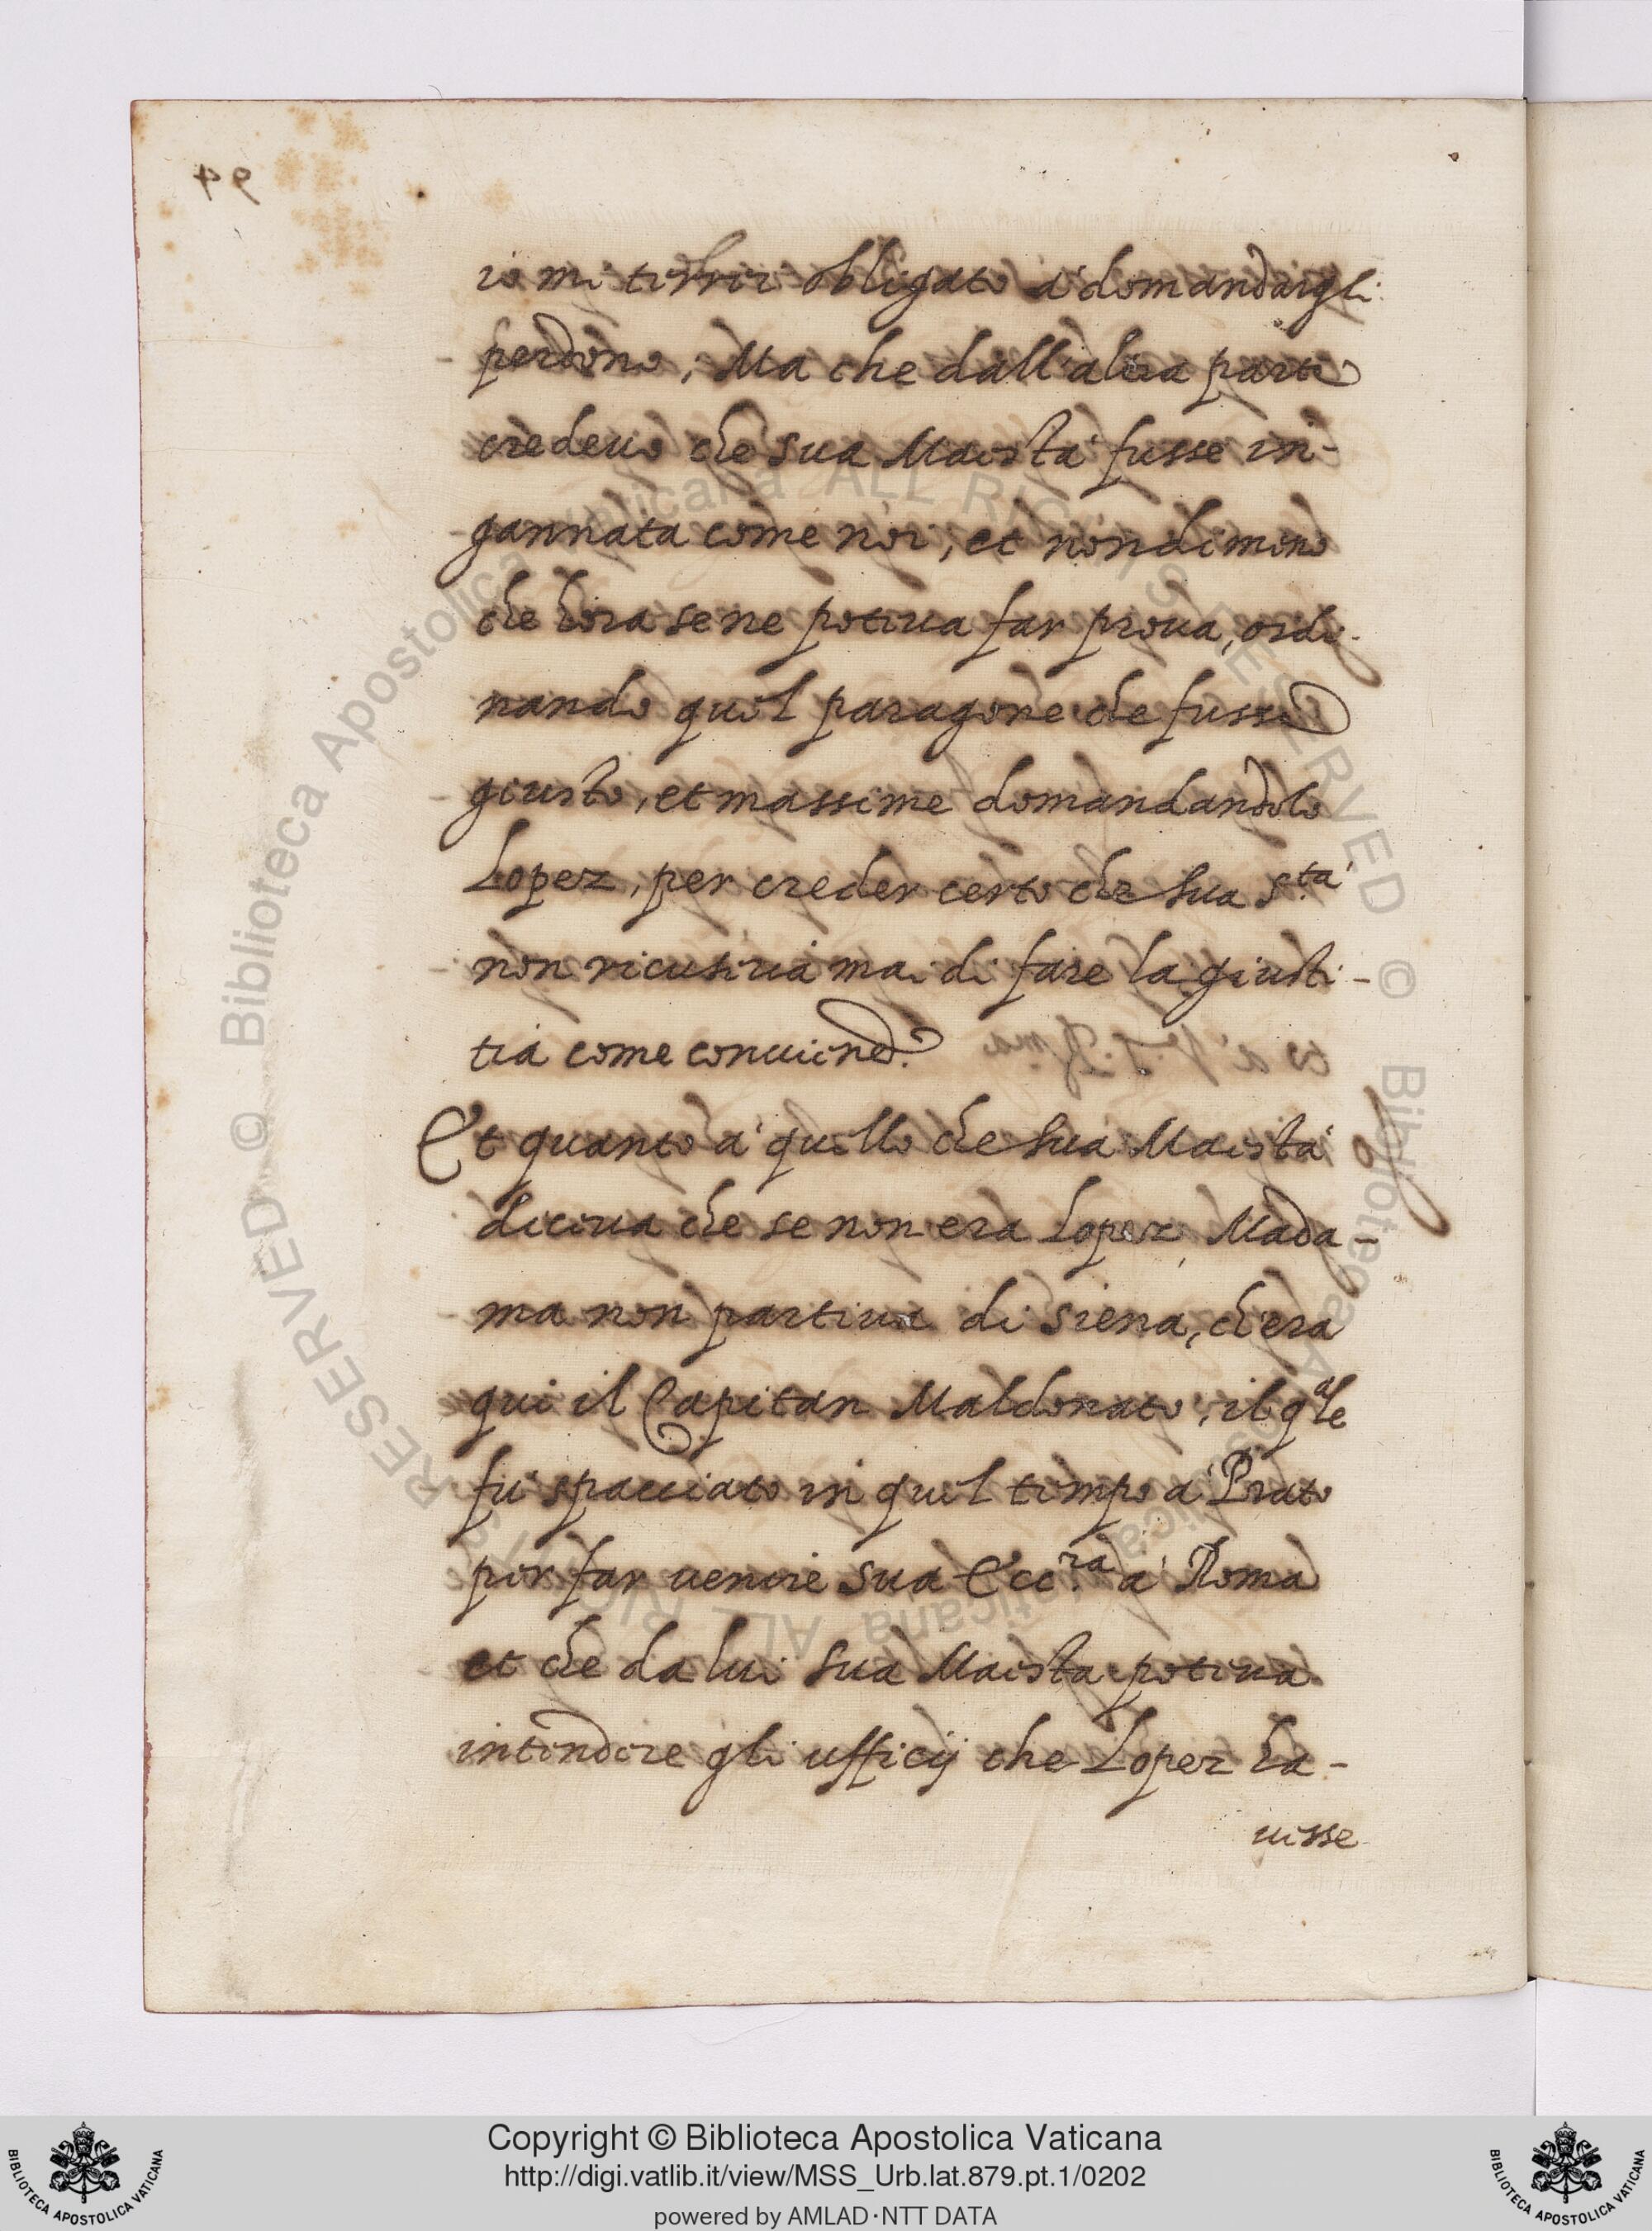 io mi terrei obligato à domandargli
perdono, Ma che dall'altra parte
credeuo che sua Maestà fusse in-
gannata come noi, et nondimeno
che hora se ne poteua far proua, ordi-
nando quel paragone che fusse
giusto, et massime domandandolo
Lopez, per creder certo che sua S.tà
non ricuseria mai di fare la giusti-
tia come conuiene.
Et quanto à quello che sua Maestà
diceua che se non era Lopez, Mada-
ma non partiua di Siena, ch'era
qui il Capitan Maldonato, il qale
fu spacciato in quel tempo à Prato
per far uenire sua Ecc.ra à Roma
et che da lui sua Maestà poteua
intendere gli ufficij che Lopez ha-
uesse
Copyright © Biblioteca Apostolica Vaticana
http://digi.vatlib.it/view/MSS_Urb.lat.879.pt.1/0202
powered by AMLAD·NTT DATA
BIBLIOTECA APOSTOLICA VATICANA
BIBLIOTECA APOSTOLICA VATICANA